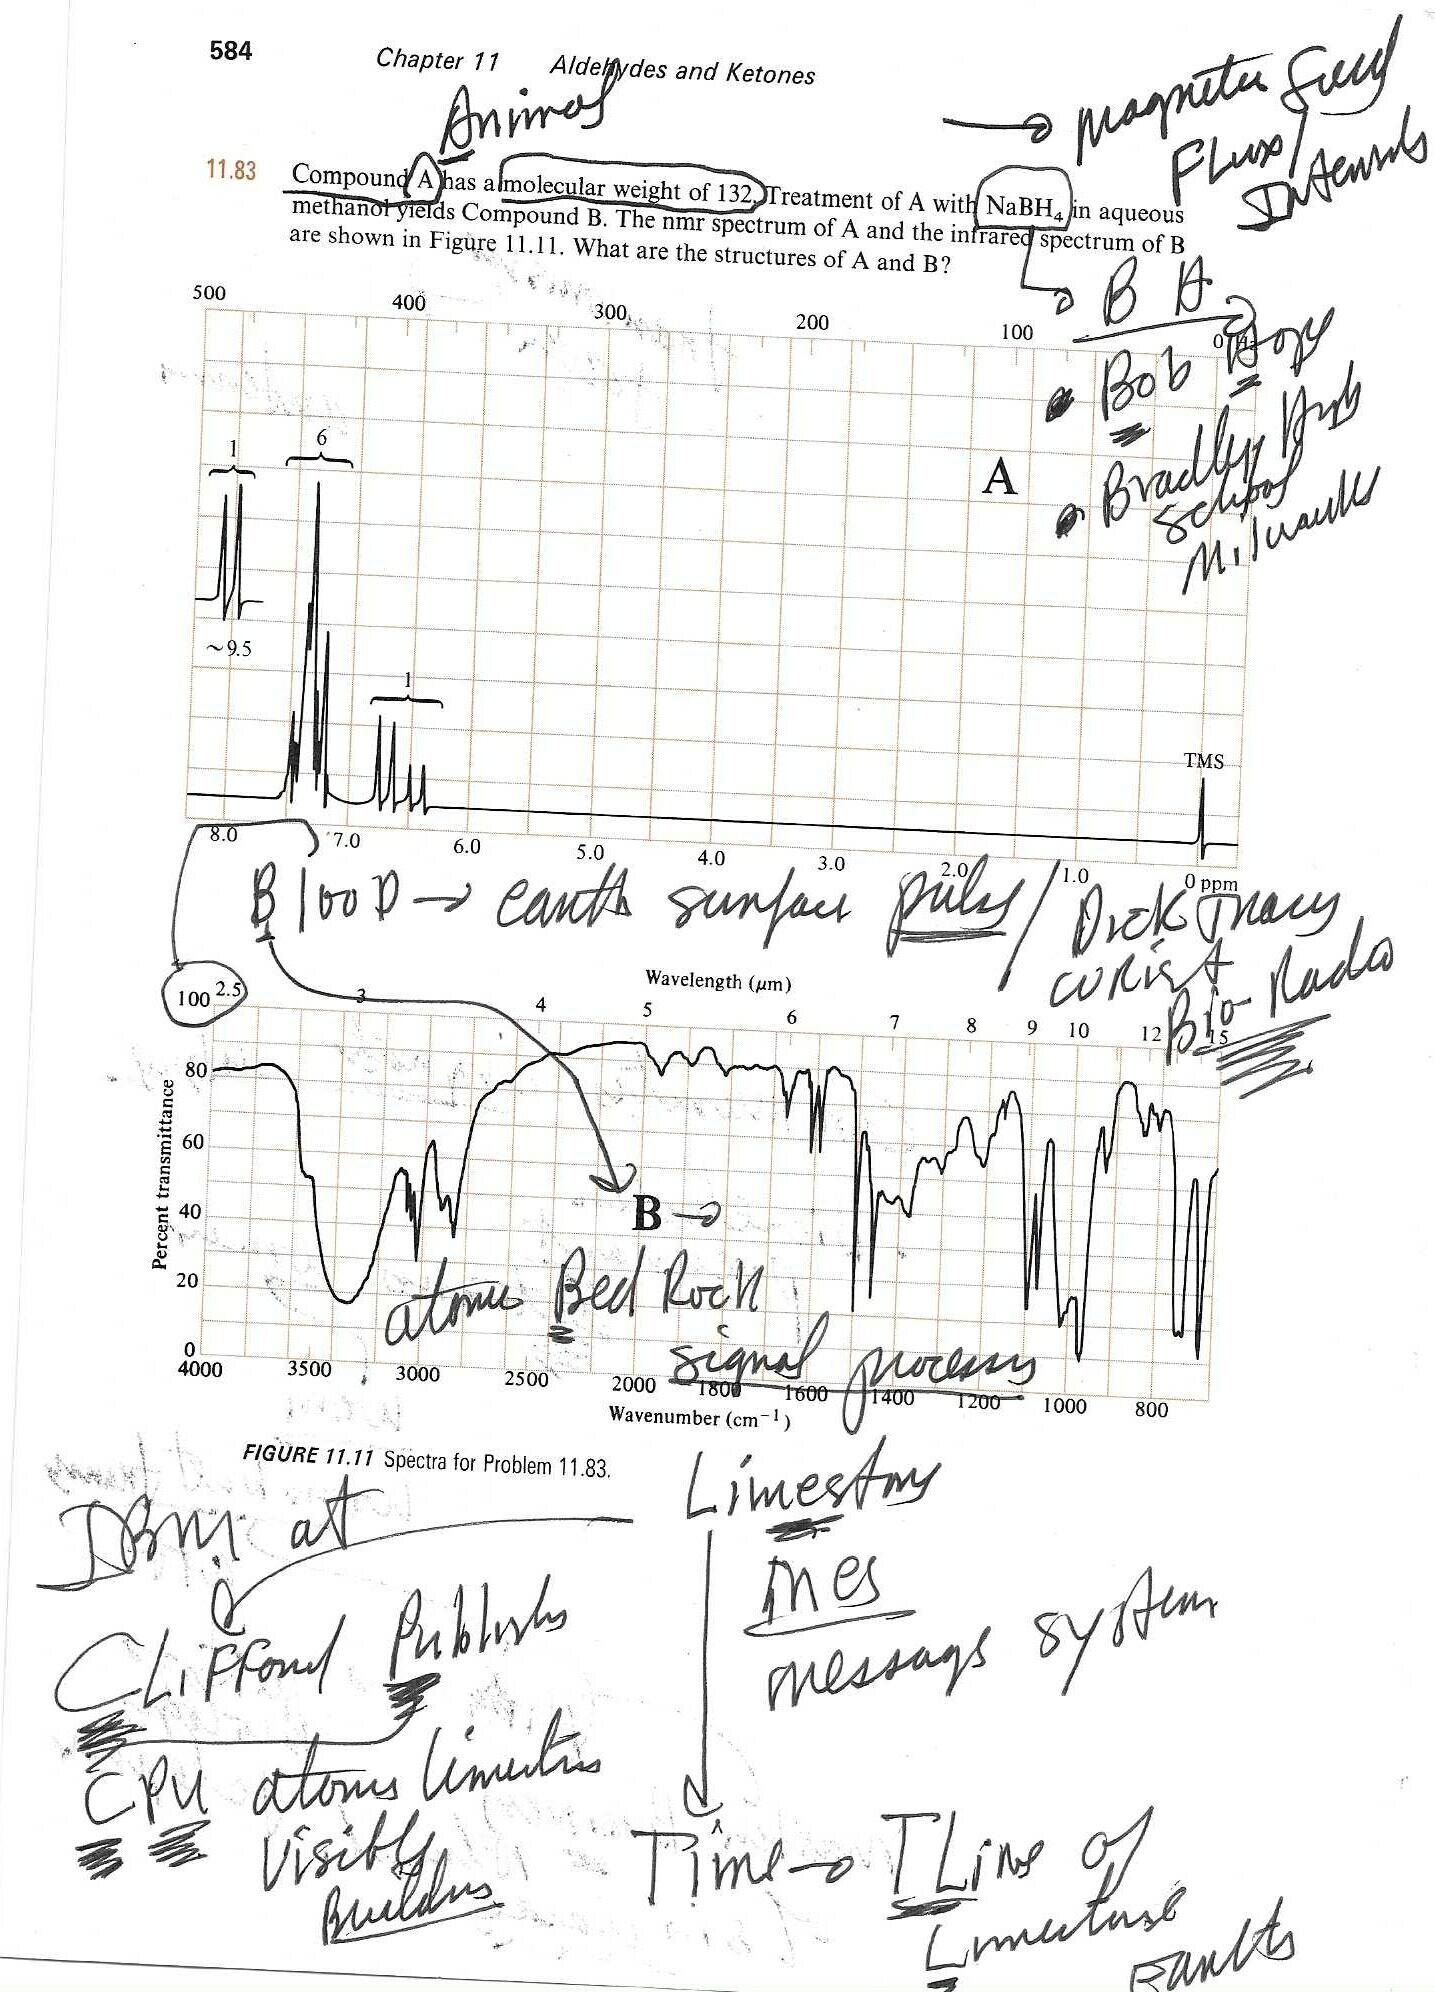 584 Chapter 11 Aldehydes and Ketones
Animal
11.83 Compound A has a molecular weight of 132. Treatment of A with NaBH4 in aqueous
methanol yields Compound B. The nmr spectrum of A and the infrared spectrum of B
are shown in Figure 11.11. What are the structures of A and B?
Flux/
B H
Bob Hope
Bradley High
School
500 400 300 200 100 0 Hz
1 6
A
~9.5
1
TMS
8.0 7.0 6.0 5.0 4.0 3.0 2.0 1.0 0 ppm
Blood earth surface pulse / Dick Tracy
wrist
Bio-Radio
Wavelength (μm)
2.5 3 4 5 6 7 8 9 10 12 15
Percent transmittance
100
80
60
40
20
0
B
atomic Bed Rock
signal process
4000 3500 3000 2500 2000 1800 1600 1400 1200 1000 800
Wavenumber (cm−1)
FIGURE 11.11 Spectra for Problem 11.83.
Limestone
IBM at
mes
message system
Clifford
CPU atoms
visibly
Builders
Time TLine of
faults